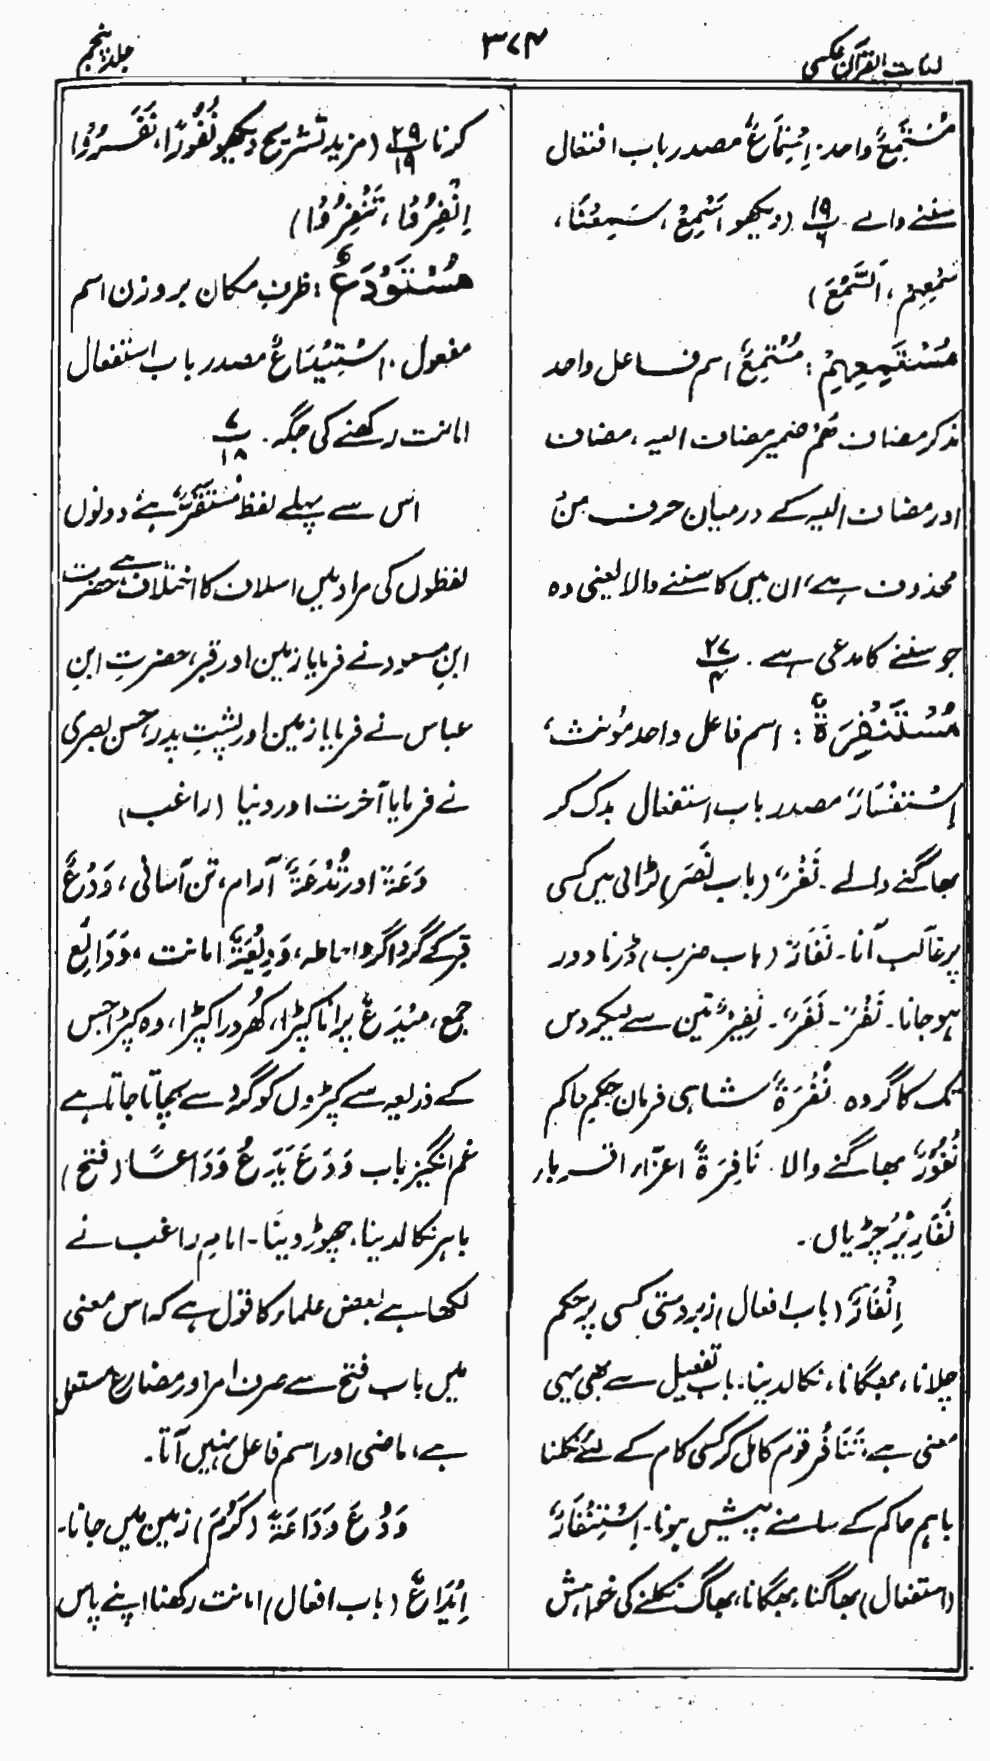 لغات القرآن عکسی
۳۷۴
جلد پنجم
مُسْتَمِعٌ واحد. اِسْتِمَاعٌ مصدر باب افتعال
سننے والے پ۱۹/۶ (دیکھو اَسْمِعْ، سَمِعْنَا،
سَمْعِهِمْ، اَلسَّمْعَ)
مُسْتَمِعُهُمْ: مُسْتَمِعٌ اسم فاعل واحد
مذکر مضاف ھُمْ ضمیر مضاف الیہ، مضاف
اور مضاف الیہ کے درمیان حرف مِنْ
محذوف ہے، ان میں کا سننے والا یعنی وہ
جو سننے کا مدعی ہے۔ پ۲۷/۴
مُسْتَنْفِرَةٌ: اسم فاعل واحد مؤنث،
اِسْتِنْفَارٌ مصدر باب استفعال بدک کر
بھاگنے والے۔ نَفْرٌ (باب نَصَرَ) لڑائی میں کسی
پر غالب آنا۔ نَفَارٌ (باب ضرب) ڈرنا دور
ہو جانا۔ نَفْرٌ۔ نَفَرٌ۔ نَفِیْرٌ تین سے لیکر دس
تک کا گروہ نُفْرَةٌ شاہی فرمان حکیم حاکم
نُفُوْرٌ بھاگنے والا۔ نَافِرَةٌ اعزاء اقربار
نَفَارِیْرُ چڑیاں۔
اِنْفَارٌ (باب افعال) زبردستی کسی پر حکم
چلانا، بھگانا، نکالدینا۔ باب تفعیل سے بھی یہی
معنی ہے، تَنَافُر قوم کا مل کر کسی کام کے لئے نکلنا
باہم حاکم کے سامنے پیش ہونا۔ اِسْتِنْفَارٌ
(استفعال) بھاگنا، بھگانا، بھاگ نکلنے کی خواہش
کرنا پ۲۹/۱۹ (مزید تشریح دیکھو نُفُوْرًا، نَفَرُوْا
اِنْفِرُوْا، تَنْفِرُوْا)
مُسْتَوْدَعٌ: ظرف مکان بروزن اسم
مفعول۔ اِسْتِیْدَاعٌ مصدر باب استفعال
امانت رکھنے کی جگہ۔ پ۷/۱۸
اس سے پہلے لفظ مُسْتَقَرٌّ ہے دونوں
لفظوں کی مراد میں اسلاف کا اختلاف ہے حضرت
ابنِ مسعود نے فرمایا زمین اور قبر، حضرتِ ابنِ
عباس نے فرمایا زمین اور پشتِ پدر، حسن بصری
نے فرمایا آخرت اور دنیا (راغب)
دَعَةٌ اور تُدْعَةٌ آرام، تن آسانی، وَدْعٌ
قبر کے گردا گرد احاطہ، وَدِیْعَةٌ امانت، وَدَائِعُ
جمع، مِیْدَعٌ پرانا کپڑا، کھُردرا کپڑا، وہ کپڑا جس
کے ذریعہ سے کپڑوں کو گرد سے بچاتا جاتا ہے
غم انگیز باب وَدَعَ یَدَعُ وَدَاعًا (فتح)
باہر نکالدینا، چھوڑ دینا۔ امام راغب نے
لکھا ہے بعض علماء کا قول ہے کہ اس معنی
میں باب فتح سے صرف امر اور مضارع مستعمل
ہے، ماضی اور اسم فاعل نہیں آتا۔
وَدُعَ وَدَاعَةٌ (کَرُمَ) زمین میں جانا۔
اِیْدَاعٌ (باب افعال) امانت رکھنا اپنے پاس